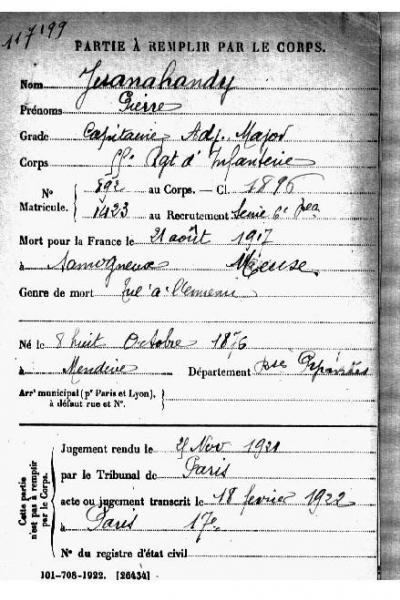 117199
PARTIE À REMPLIR PAR LE CORPS.
Nom
Prénoms Pierre
Grade Capitaine Adj. Major
Corps Rgt d'Infanterie
N° 592 au Corps. — Cl. 1896
Matricule. 1423 au Recrutement Seine 6e Bau
Mort pour la France le 21 août 1917
à Samogneux Meuse
Genre de mort Tué à l'ennemi
Né le 8 huit Octobre 1876
à Mendive Département Bses Pyrénées
Arrt municipal (pr Paris et Lyon),
à défaut rue et N°.
Cette partie
n'est pas à remplir
par le Corps.
Jugement rendu le Nov 1921
par le Tribunal de Paris
acte ou jugement transcrit le 18 fevrier 1922
à Paris 17e
N° du registre d'état civil
101-708-1922. [26434]